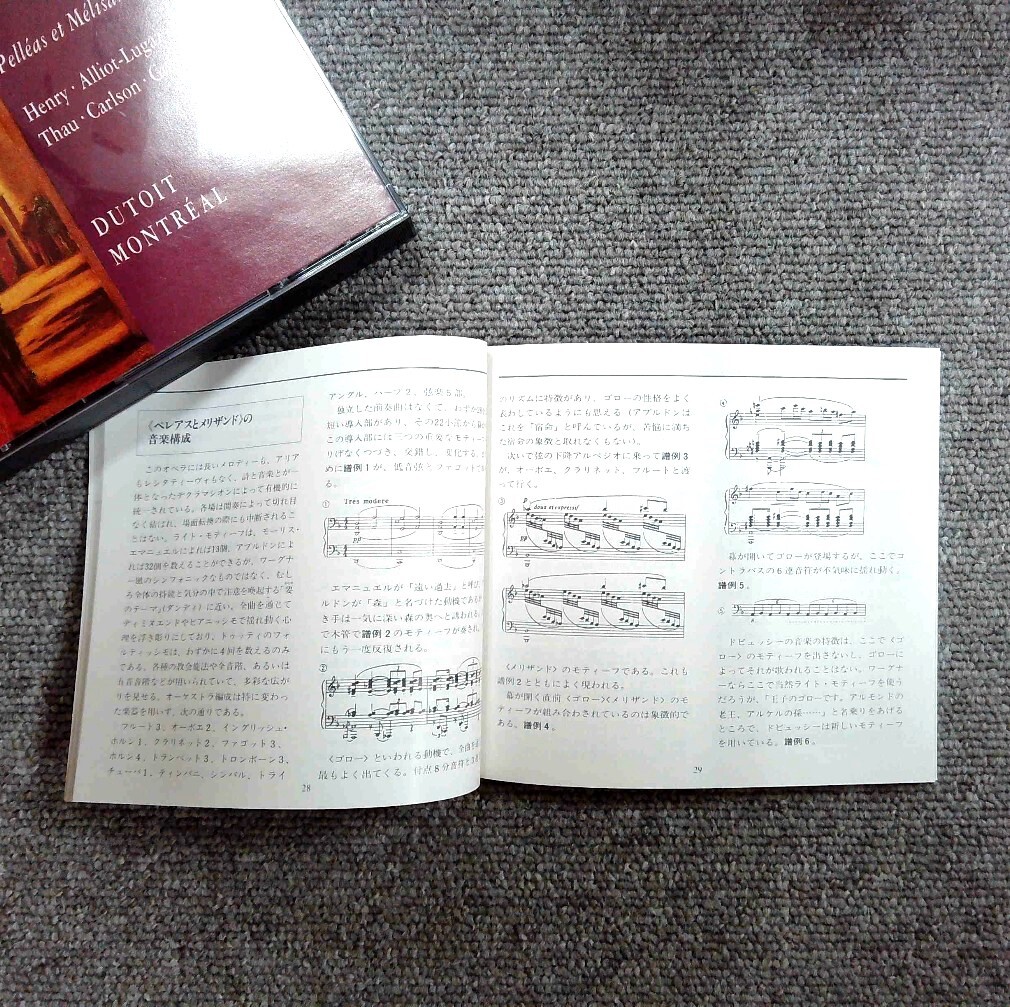 Pelléas et Mélisa
Henry · Alliot-Luga
Thau · Carlson · G
DUTOIT
MONTRÉAL
《ペレアスとメリザンド》の
音楽構成
このオペラには長いメロディーも、アリア
もレシタティーヴォもなく、詩と音楽とが一
体となったデクラマシオンによって有機的に
統一されている。各場は間奏によって切れ目
なく結ばれ、場面転換の際にも中断されるこ
とはない。ライト・モティーフは、モーリス・
エマニュエルによれば13個、アプルドンによ
れば32個を数えることができるが、ワーグナ
ー風のシンフォニックなものではなく、むし
ろ全体の持続と気分の中で注意を喚起する
のテーマ」(ダンディ)に近い。全曲を通じて
ディミヌエンドやピアニッシモで揺れ動く心
理を浮き彫りにしており、トゥッティのフォ
ルティッシモは、わずかに4回を数えるのみ
である。各種の教会旋法や全音階、あるいは
五音音階などが用いられていて、多彩な広が
りを見せる。オーケストラ編成は特に変わっ
た楽器を用いず、次の通りである。
フルート3、オーボエ2、イングリッシュ・
ホルン1、クラリネット2、ファゴット3、
ホルン4、トランペット3、トロンボーン3、
チューバ1、ティンパニ、シンバル、トライ
アングル、ハープ2、弦楽5部。
独立した前奏曲はなくて、わずか
短い導入部があり、その22小節から
この導入部には三つの重要なモティー
りげなくつづき、交錯し、変化する。
めに譜例1が、低音弦とファゴットで
る。
①
Très modéré
pp
エマニュエルが「遠い過去」と呼
ルドンが「森」と名づけた動機である
き手は一気に深い森の奥へと誘われる
で木管で譜例2のモティーフが奏され
にもう一度反復される。
②
〈ゴロー〉といわれる動機で、全曲を
最もよく出てくる。付点8分音符と3
28
のリズムに特徴があり、ゴローの性格をよく
表わしているようにも思える（アプルドンは
これを「宿命」と呼んでいるが、苦悩に満ち
た宿命の象徴と取れなくもない）。
次いで弦の下降アルペジオに乗って譜例3
が、オーボエ、クラリネット、フルートと渡
って行く。
③
p doux et expressif
pp
〈メリザンド〉のモティーフである。これも
譜例2とともによく現われる。
幕が開く直前〈ゴロー〉〈メリザンド〉のモ
ティーフが組み合わされているのは象徴的で
ある。譜例4。
④
幕が開いてゴローが登場するが、ここでコ
ントラバスの6連音符が不気味に揺れ動く。
譜例5。
⑤
ドビュッシーの音楽の特徴は、ここで〈ゴ
ロー〉のモティーフを出さないし、ゴローに
よってそれが歌われることはない。ワーグナ
ーならここで当然ライト・モティーフを使う
だろうが、「王子のゴローです。アルモンドの
老王、アルケルの孫……」と名乗りをあげる
ところで、ドビュッシーは新しいモティーフ
を用いている。譜例6。
29